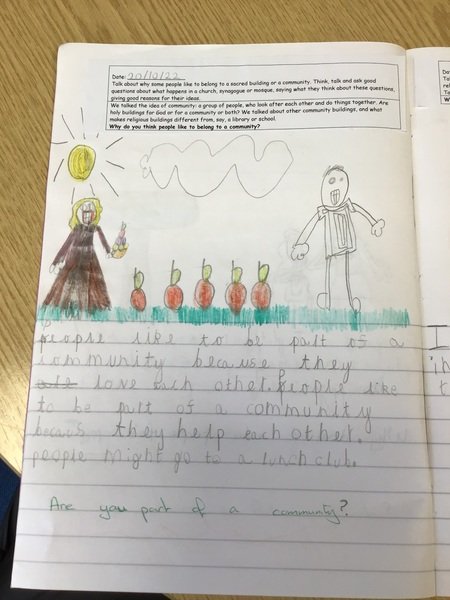 Date: 20/10/22
Talk about why some people like to belong to a sacred building or a community. Think, talk and ask good
questions about what happens in a church, synagogue or mosque, saying what they think about these questions,
giving good reasons for their ideas.
We talked the idea of community: a group of people, who look after each other and do things together. Are
holy buildings for God or for a community or both? We talked about other community buildings, and what
makes religious buildings different from, say, a library or school.
Why do you think people like to belong to a community?
people like to be part of a
community because they
love each other. people like
to be part of a community
becaus they help each other.
people might go to a lunch club.
Are you part of a community?